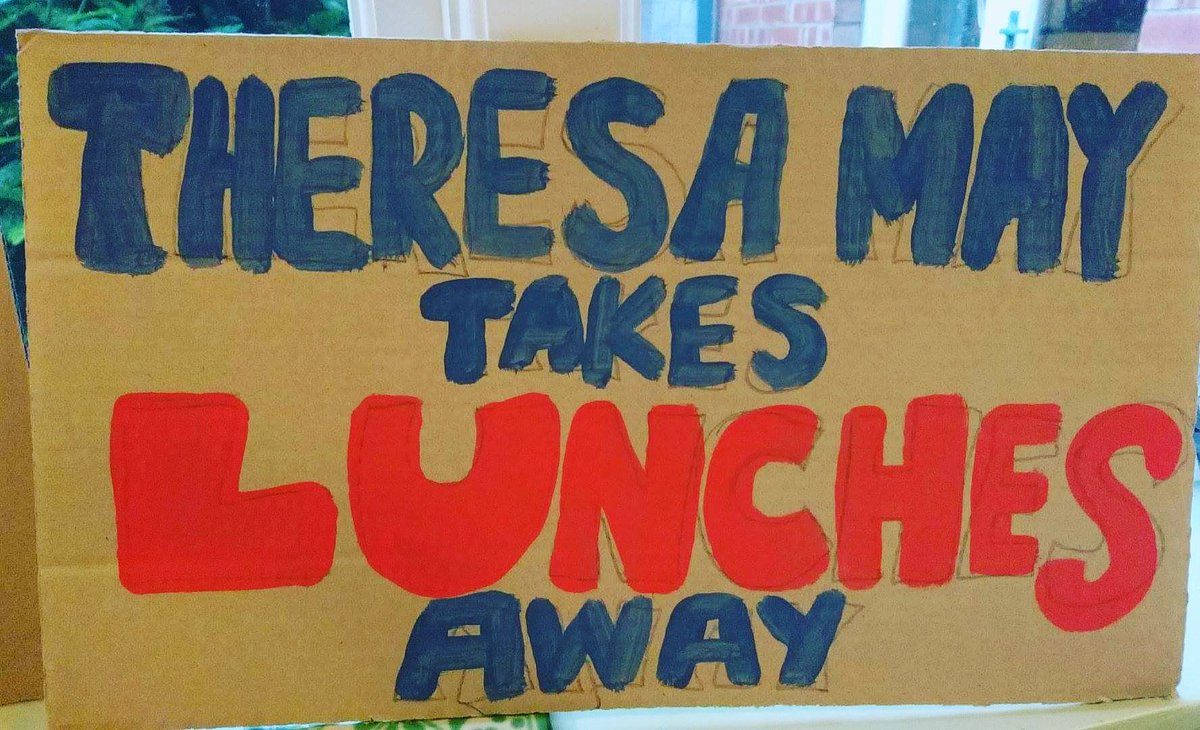 THERESA MAY
TAKES
LUNCHES
AWAY